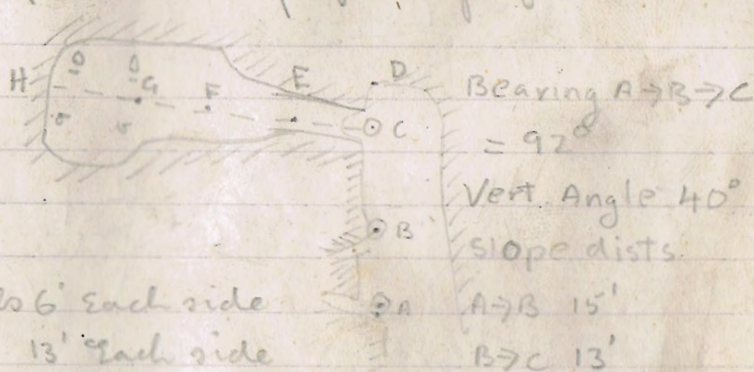 H G F E D
C
B
A
Bearing A→B→C
= 92°
Vert. Angle 40°
Slope dists.
A→B 15'
B→C 13'
6' Each side
13' Each side